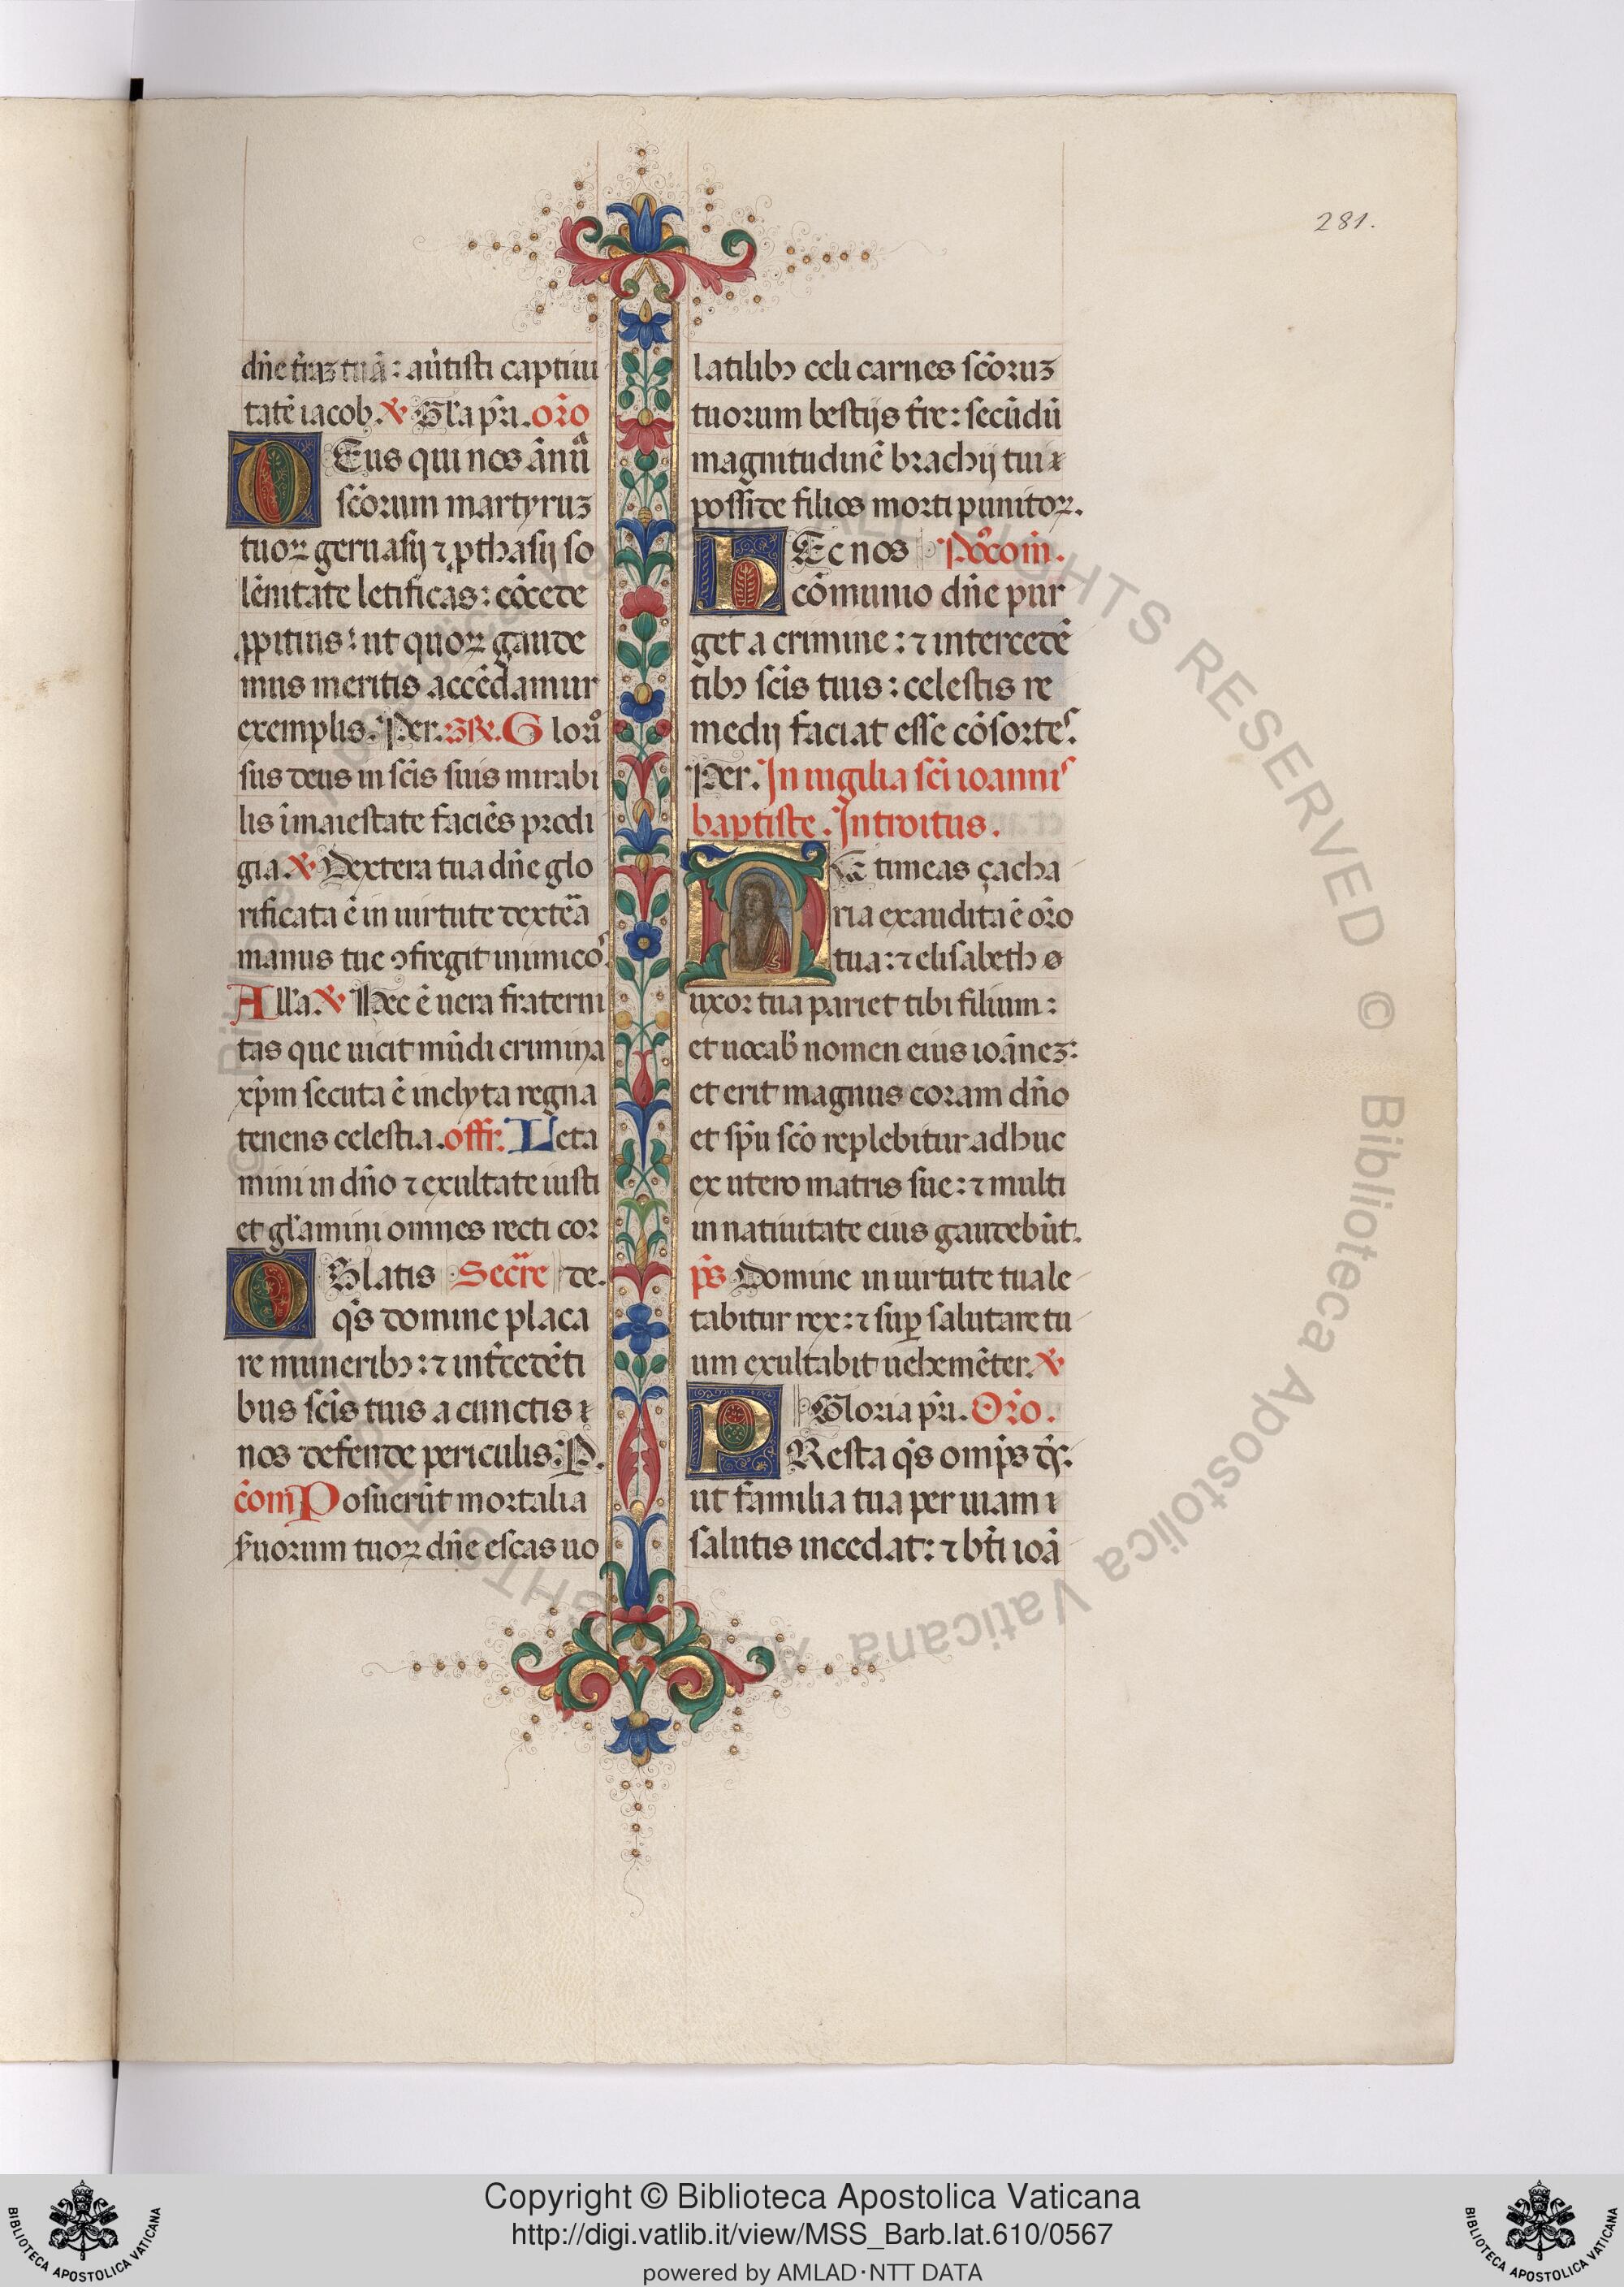 281.
dñe t̃raz tuã: au̾tisti captiui
tatẽ iacob. ℣ Gl̃a pr̃i. or̃o
DEus qui nos ãnũa
sc̃orum martyruz
tuoꝝ geruasij ⁊ ꝓthasij so
lẽnitate letificas: cõcede
ꝓpitius: ut quoꝝ gaude
mus meritis accẽdamur
exemplis. Per. GR. Glorio
sus deus in sc̃is suis mirabi
lis ĩ maiestate faciẽs prodi
gia. ℣ Dextera tua dñe glo
rificata ẽ in uirtute dextẽa
manus tue ↄfregit inimicos.
All'a. ℣ Hec ẽ uera fraterni
tas que uicit mũdi crimina
xp̃m secuta ẽ inclyta regna
tenens celestia. offr. Leta
mini in dño ⁊ exultate iusti
et gl̃amini omnes recti cor
OBlatis Secr̃e de.
q̃s domine placa
re muneribꝫ: ⁊ int̾cedẽti
bus sc̃is tuis a cunctis
nos defende periculis: P.
c̃om Posuerũt mortalia
s̾uorum tuoꝝ dñe escas uo
latilibꝫ celi carnes sc̃oruz
tuorum bestijs t̾re: secũdũ
magnitudinẽ brachij tui
posside filios morti punitoꝝ.
hEc nos Põcom̃.
cõmunio dñe pur
get a crimine: ⁊ intercedẽ
tibꝫ sc̃is tuis: celestis re
medij faciat esse cõsortes.
Per. In uigilia sc̃i ioannis
baptiste. Introitus.
NE timeas çacha
ria exaudita ẽ or̃o
tua: ⁊ elisabeth
uxor tua pariet tibi filium:
et uocab̾ nomen eius ioãnez:
et erit magnus coram dño
et sp̃u sc̃o replebitur adhuc
ex utero matris sue: ⁊ multi
in natiuitate eius gaudebũt.
p̃s Domine in uirtute tua le
tabitur rex: ⁊ suꝑ salutare tu
um exultabit uehemẽter. ℣
Gloria pr̃i. Or̃o.
PResta q̃s omp̃s d̃s:
ut familia tua per uiam
salutis incedat: ⁊ bt̃i ioã
© Biblioteca Apostolica Vaticana ALL RIGHTS RESERVED
Copyright © Biblioteca Apostolica Vaticana
http://digi.vatlib.it/view/MSS_Barb.lat.610/0567
powered by AMLAD·NTT DATA
BIBLIOTECA APOSTOLICA VATICANA
BIBLIOTECA APOSTOLICA VATICANA